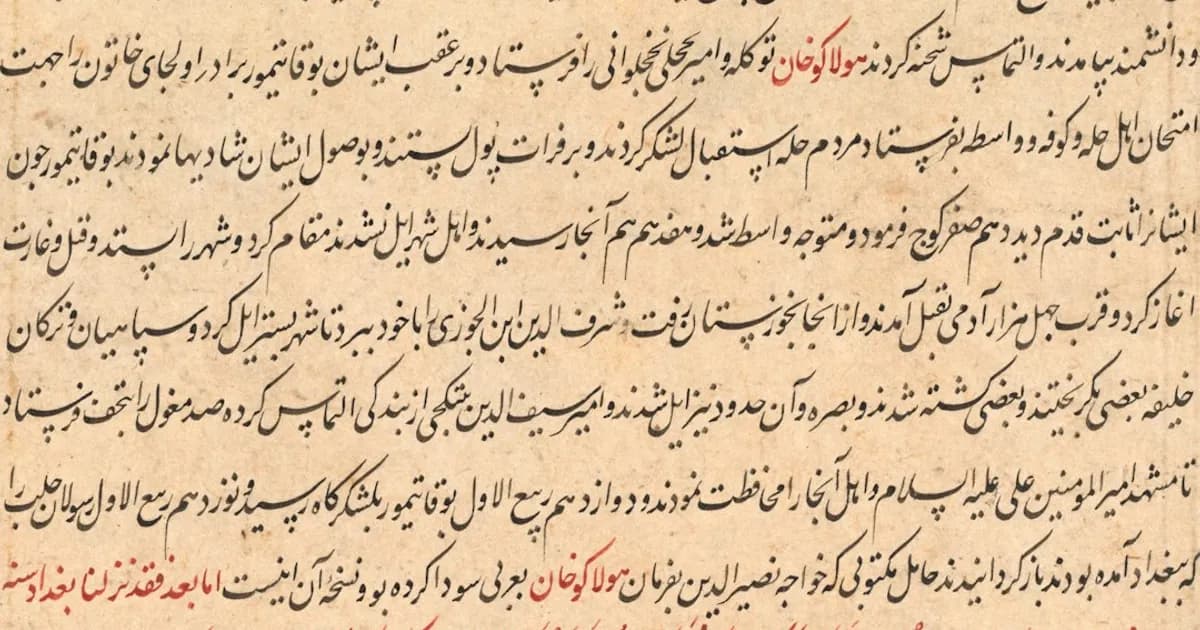 و دانشمند بیامدند و التماس شحنه کردند هولاکو خان توکله و امیر نحلی نخجوانی را فرستاد و بر عقب ایشان بوقا تیمور برادر اولجای خاتون را جهت
امتحان اهل حله و کوفه و واسط بفرستاد مردم حله استقبال لشکر کردند و بر فرات پول بستند و بوصول ایشان شادیها نمودند بوقا تیمور چون
ایشانرا ثابت قدم دید دهم صفر کوچ فرمود و متوجه واسط شد و هفدهم هم آنجا رسیدند و اهل شهر ایل نشدند مقام کرد و شهر را بستند و قتل و غارت
اغاز کرد و قرب چهل هزار آدمی بقتل آمدند و از انجا بخوزستان رفت و شرف الدین ابن الجوزی را با خود ببرد تا شهر بستر ایل کرد و سپاهیان و ترکان
خلیفه بعضی بگریختند و بعضی کشته شدند و بصره و آن حدود نیز ایل شدند و امیر سیف الدین بتکجی از بندکی التماس کرده صد مغول را بنجف فرستاد
تا مشهد امیر المومنین علی علیه السلام و اهل آنجا را محافظت نمودند و دوازدهم ربیع الاول بوقا تیمور بلشکرگاه رسید و نوزدهم ربیع الاول رسولان حلب را
که ببغداد آمده بودند باز کردانیدند حامل مکتوبی که خواجه نصیر الدین بفرمان هولاکو خان بعربی سودا کرده بود و نسخه آن اینست اما بعد فقد نزلنا بغداد سنه